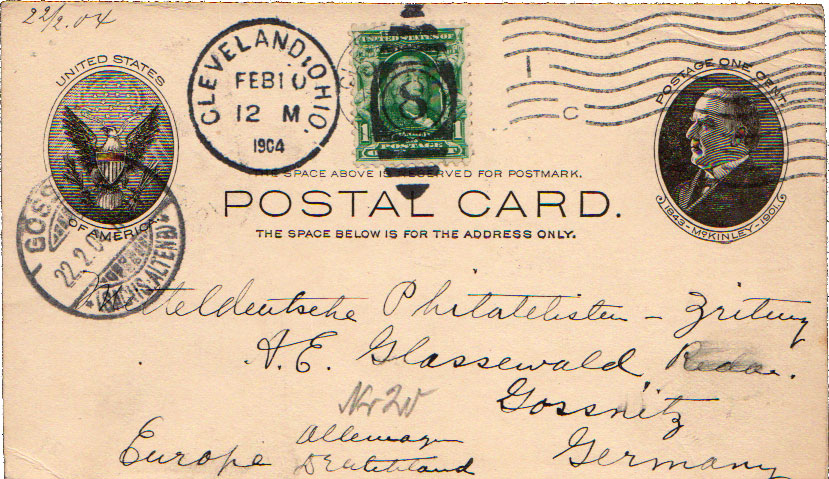 22/2.04
UNITED STATES
OF AMERICA
CLEVELAND, OHIO.
FEB 10
12 M
1904
UNITED STATES OF
8
1
POSTAGE
C
POSTAGE ONE CENT
1843-McKINLEY-1901.
THE SPACE ABOVE IS RESERVED FOR POSTMARK.
POSTAL CARD.
THE SPACE BELOW IS FOR THE ADDRESS ONLY.
GÖSS
22.2.0
Mitteldeutsche Philatelisten - Zeitung
A. E. Glassewald
Nr 20
Gossnitz
Allemagn
Europe Deutchland Germany